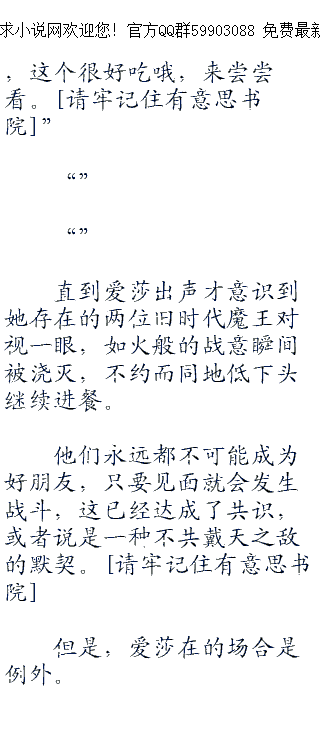 求小说网欢迎您！官方QQ群59903088 免费最新
，这个很好吃哦，来尝尝
看。[请牢记住有意思书
院]”
“”
“”
直到爱莎出声才意识到
她存在的两位旧时代魔王对
视一眼，如火般的战意瞬间
被浇灭，不约而同地低下头
继续进餐。
他们永远都不可能成为
好朋友，只要见面就会发生
战斗，这已经达成了共识，
或者说是一种不共戴天之敌
的默契。[请牢记住有意思书
院]
但是，爱莎在的场合是
例外。